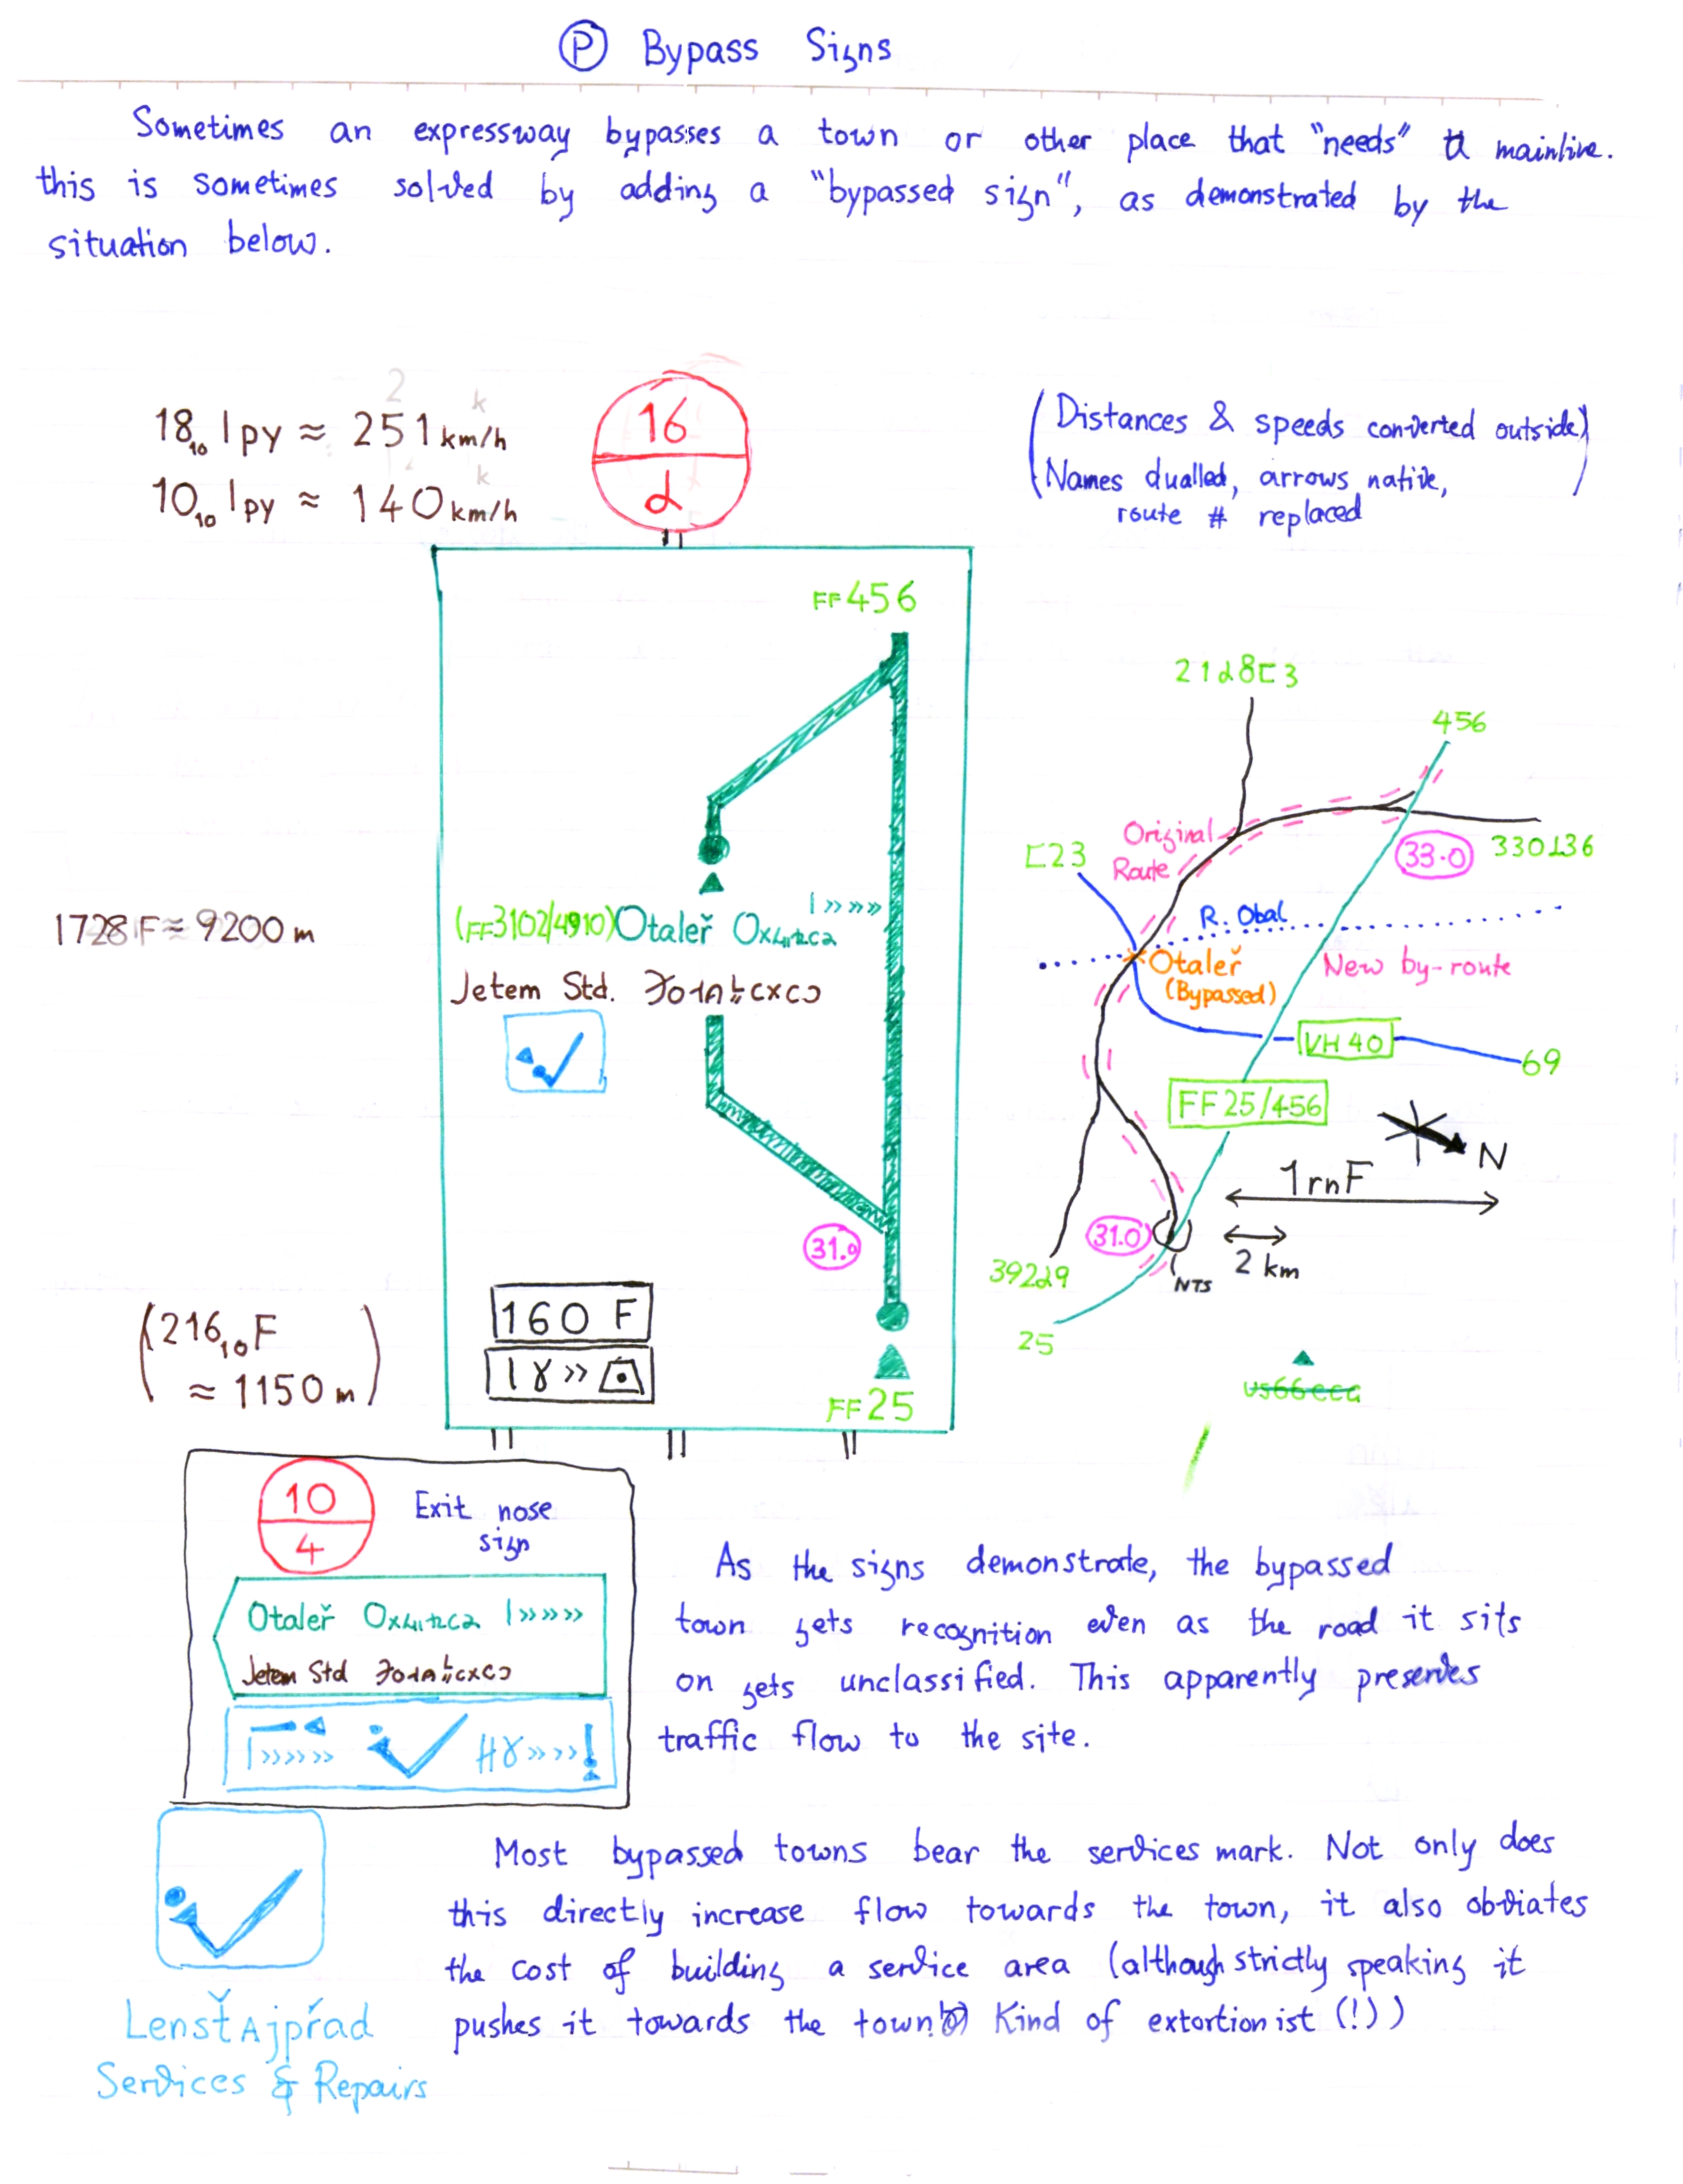 Ⓟ Bypass Signs
Sometimes an expressway bypasses a town or other place that "needs" a mainline.
this is sometimes solved by adding a "bypassed sign", as demonstrated by the
situation below.
18₁₀ lpy ≈ 251 km/h
10₁₀ lpy ≈ 140 km/h
16
(Distances & speeds converted outside)
(Names dualled, arrows native,
route # replaced)
FF456
456
Original
Route
33.0
C23
R. Obal
(FF3102/4910) Otaleř
1728 F ≈ 9200 m
Otaleř
(Bypassed)
New by-route
Jetem Std.
VH 40
69
FF 25/456
N
1rnF
31.0
31.0
2 km
NTS
25
160 F
(216₁₀F
≈ 1150 m)
FF25
10
4
Exit nose
sign
Otaleř
Jetem Std
As the signs demonstrate, the bypassed
town gets recognition even as the road it sits
on gets unclassified. This apparently preserves
traffic flow to the site.
Most bypassed towns bear the services mark. Not only does
this directly increase flow towards the town, it also obviates
the cost of building a service area (although strictly speaking it
pushes it towards the town. Kind of extortionist (!))
LensťAjpřad
Services & Repairs